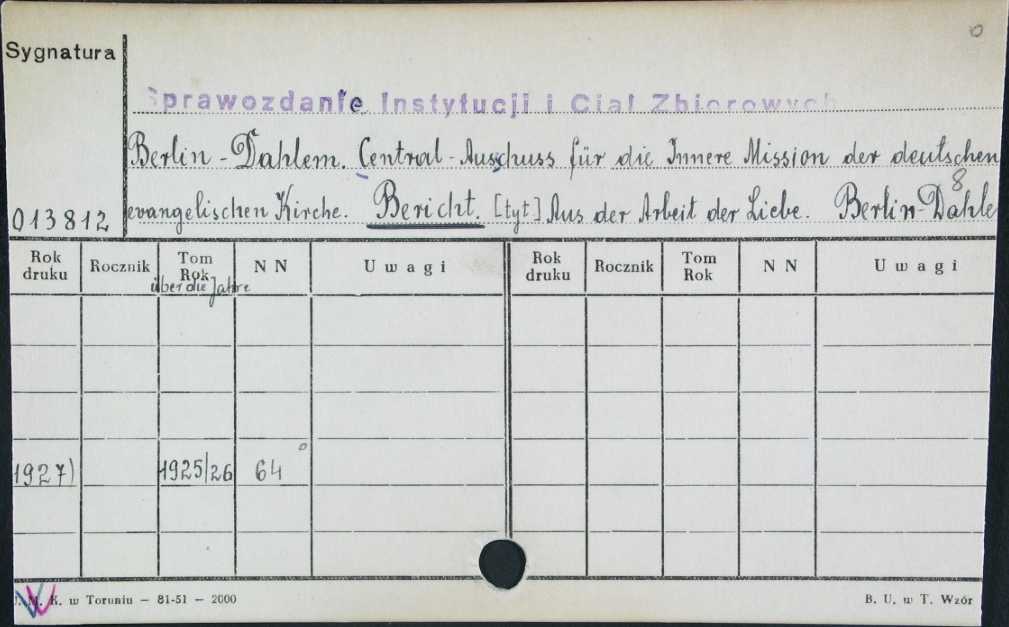 Sygnatura
Sprawozdanie Instytucji i Ciał Zbiorowych
Berlin-Dahlem. Central-Ausschuss für die Innere Mission der deutschen
8
013812 evangelischen Kirche. Bericht. [tyt] Aus der Arbeit der Liebe. Berlin-Dahle
Rok druku Rocznik Tom Rok N N Uwagi Rok druku Rocznik Tom Rok N N Uwagi
über die Jahre
1927) 1925/26 64
K. w Toruniu — 81-51 — 2000 B. U. w T. Wzór